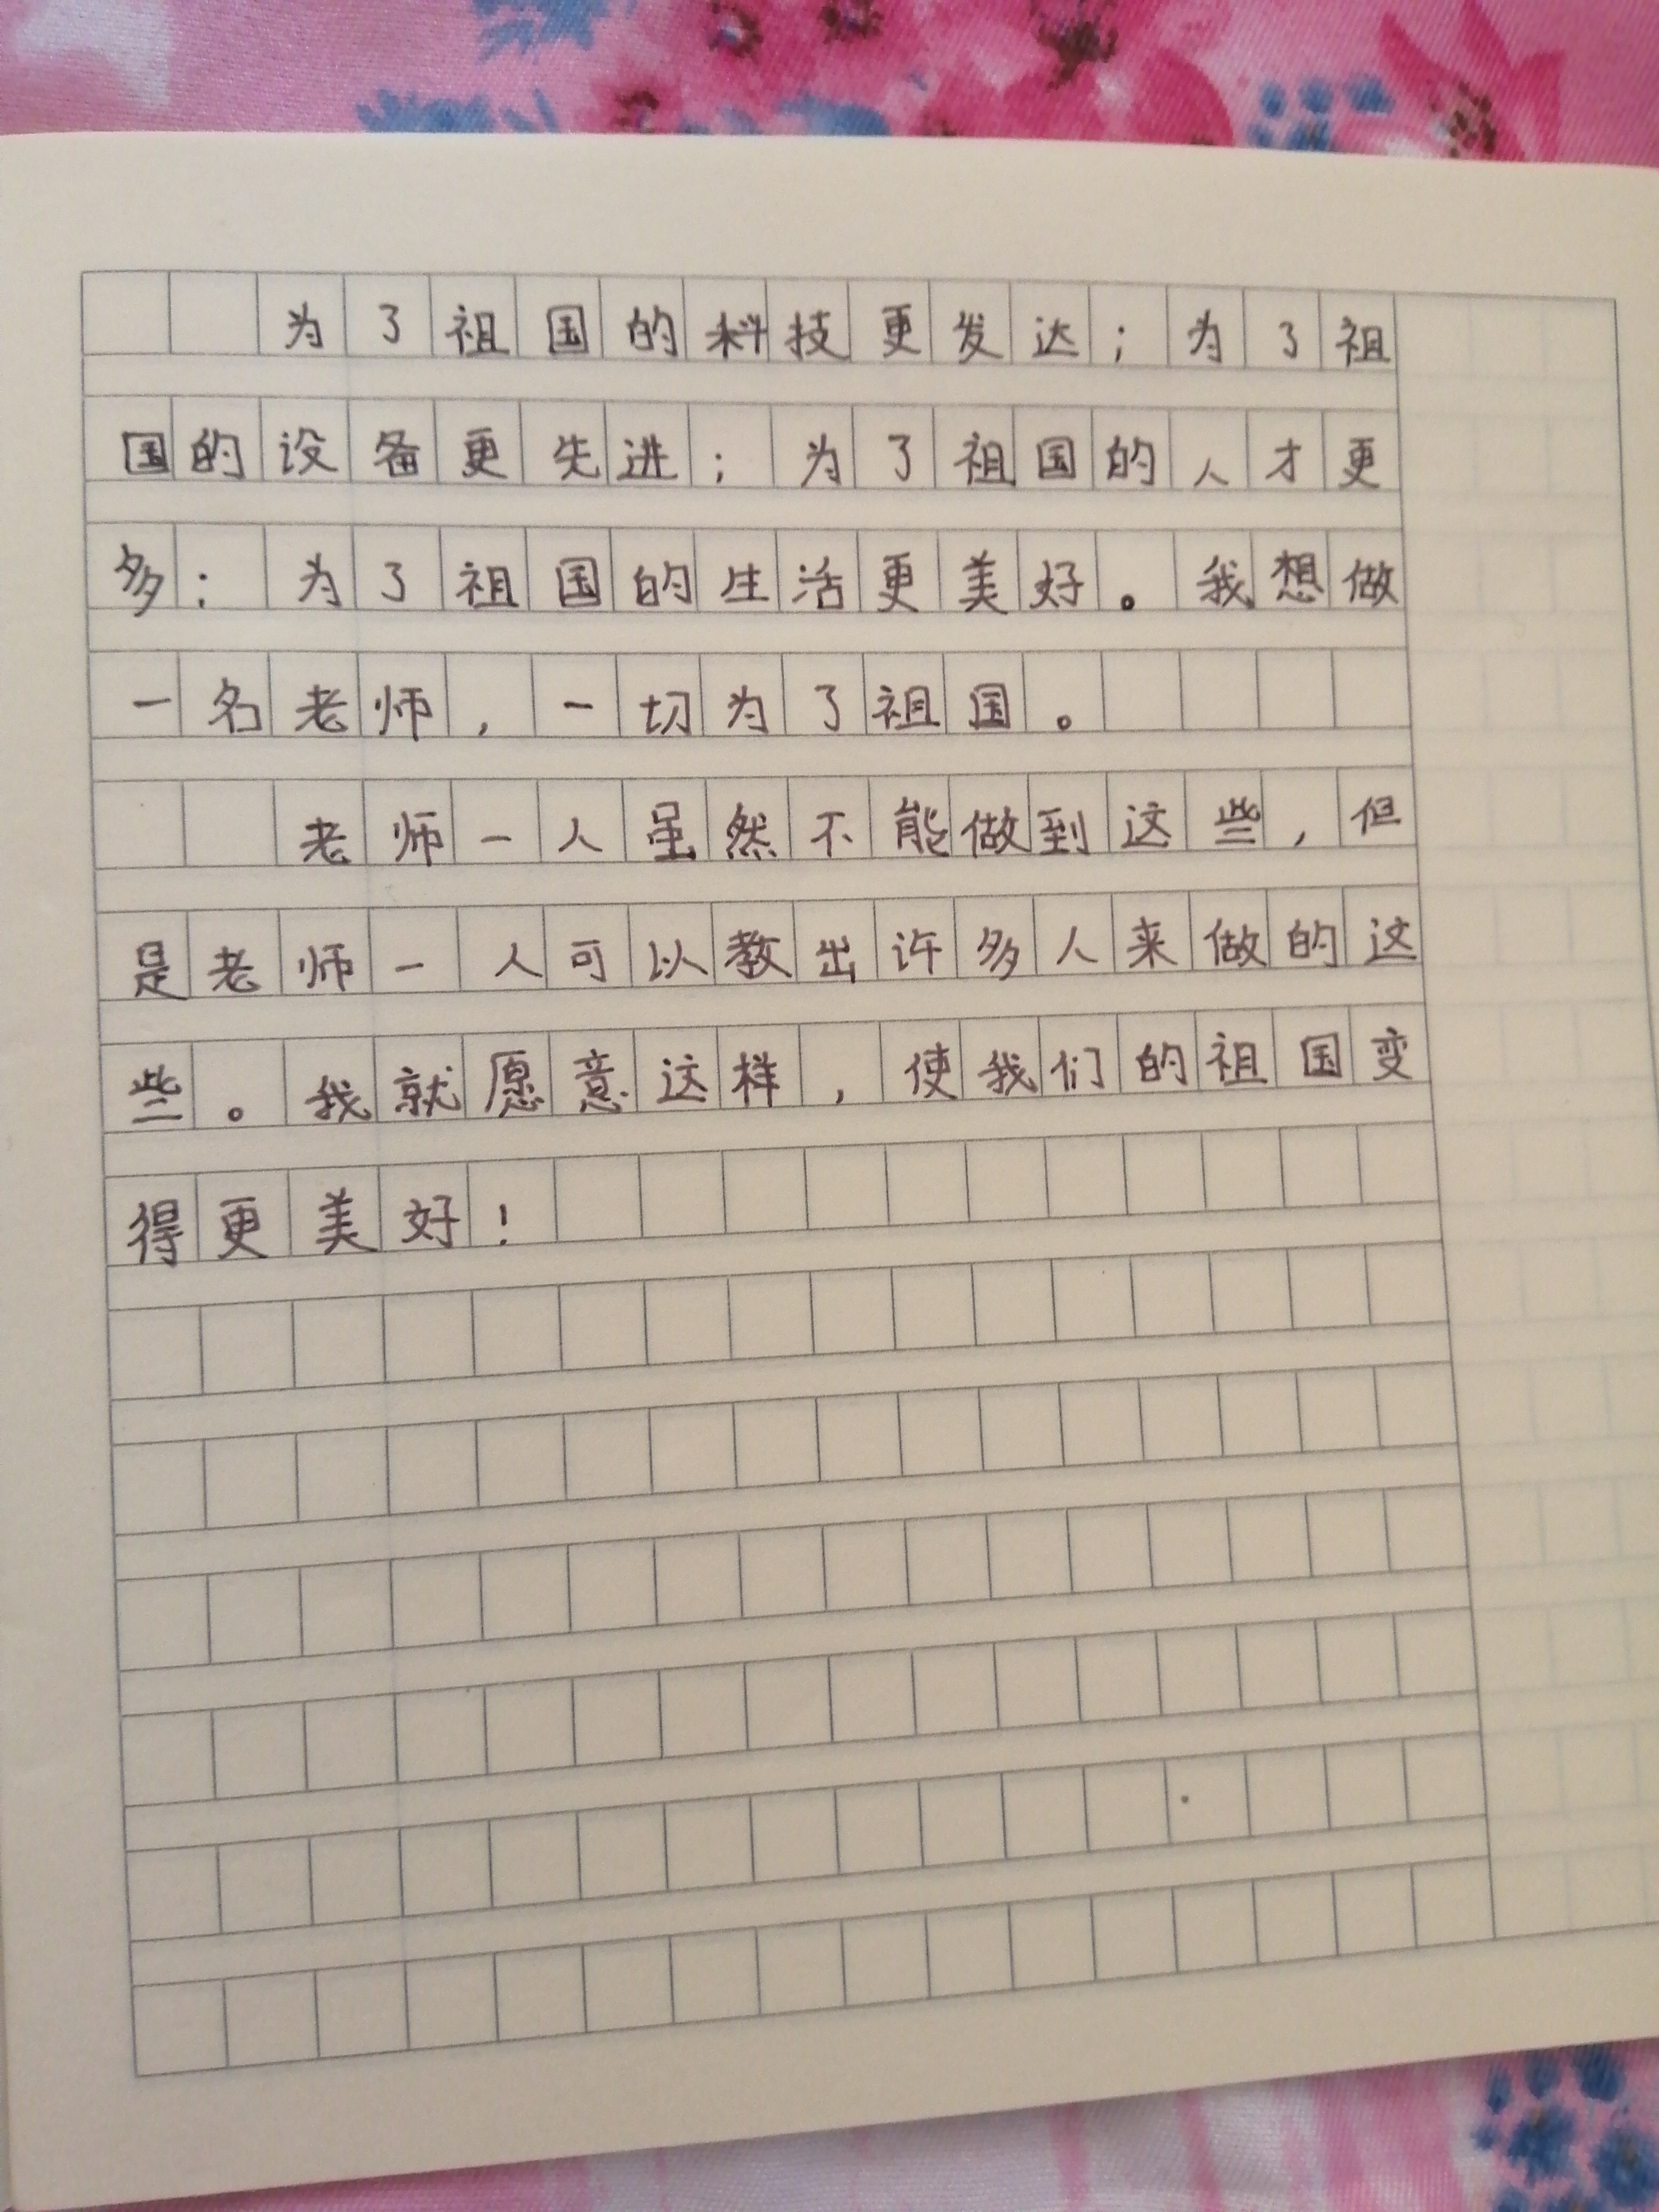 为了祖国的科技更发达；为了祖
国的设备更先进；为了祖国的人才更
多；为了祖国的生活更美好。我想做
一名老师，一切为了祖国。
老师一人虽然不能做到这些，但
是老师一人可以教出许多人来做的这
些。我就愿意这样，使我们的祖国变
得更美好！